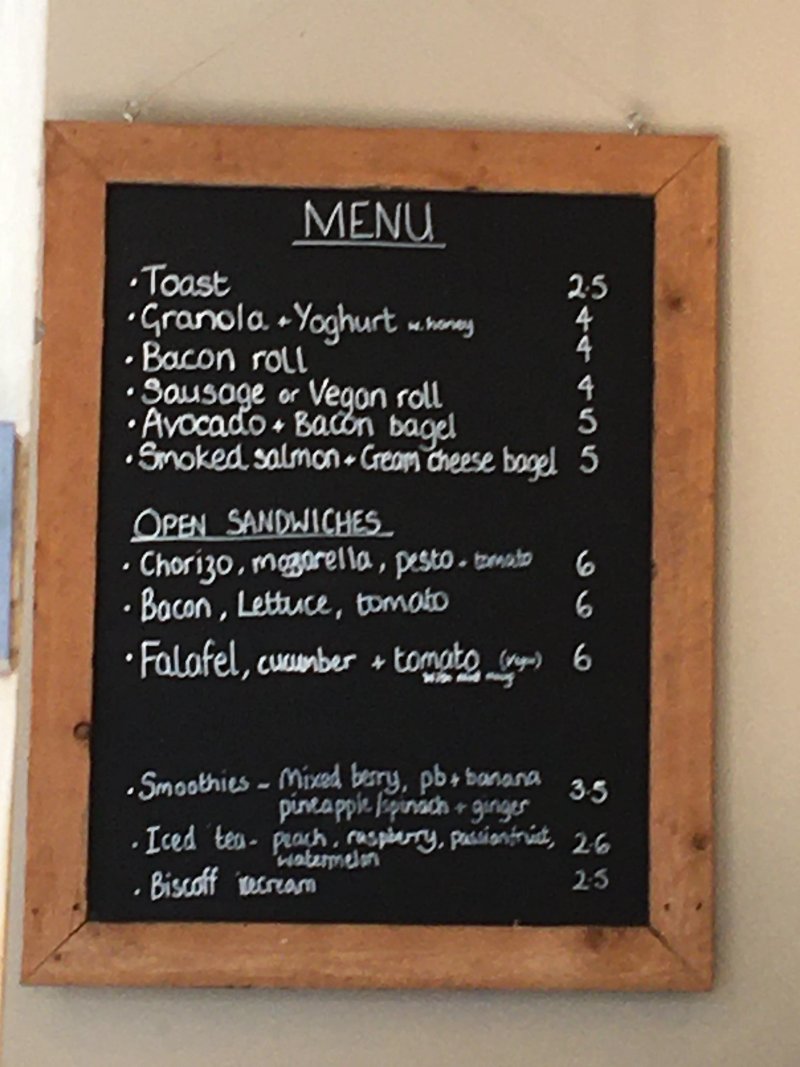 MENU
• Toast 2.5
• Granola + Yoghurt w. honey 4
• Bacon roll 4
• Sausage or Vegan roll 4
• Avocado + Bacon bagel 5
• Smoked salmon + Cream cheese bagel 5
OPEN SANDWICHES
• Chorizo, mozarella, pesto + tomato 6
• Bacon, Lettuce, tomato 6
• Falafel, cucumber + tomato (vegan) 6
• Smoothies - Mixed berry, pb + banana 3.5
pineapple/spinach + ginger
• Iced tea - peach, raspberry, passionfruit, 2.6
watermelon
• Biscoff icecream 2.5